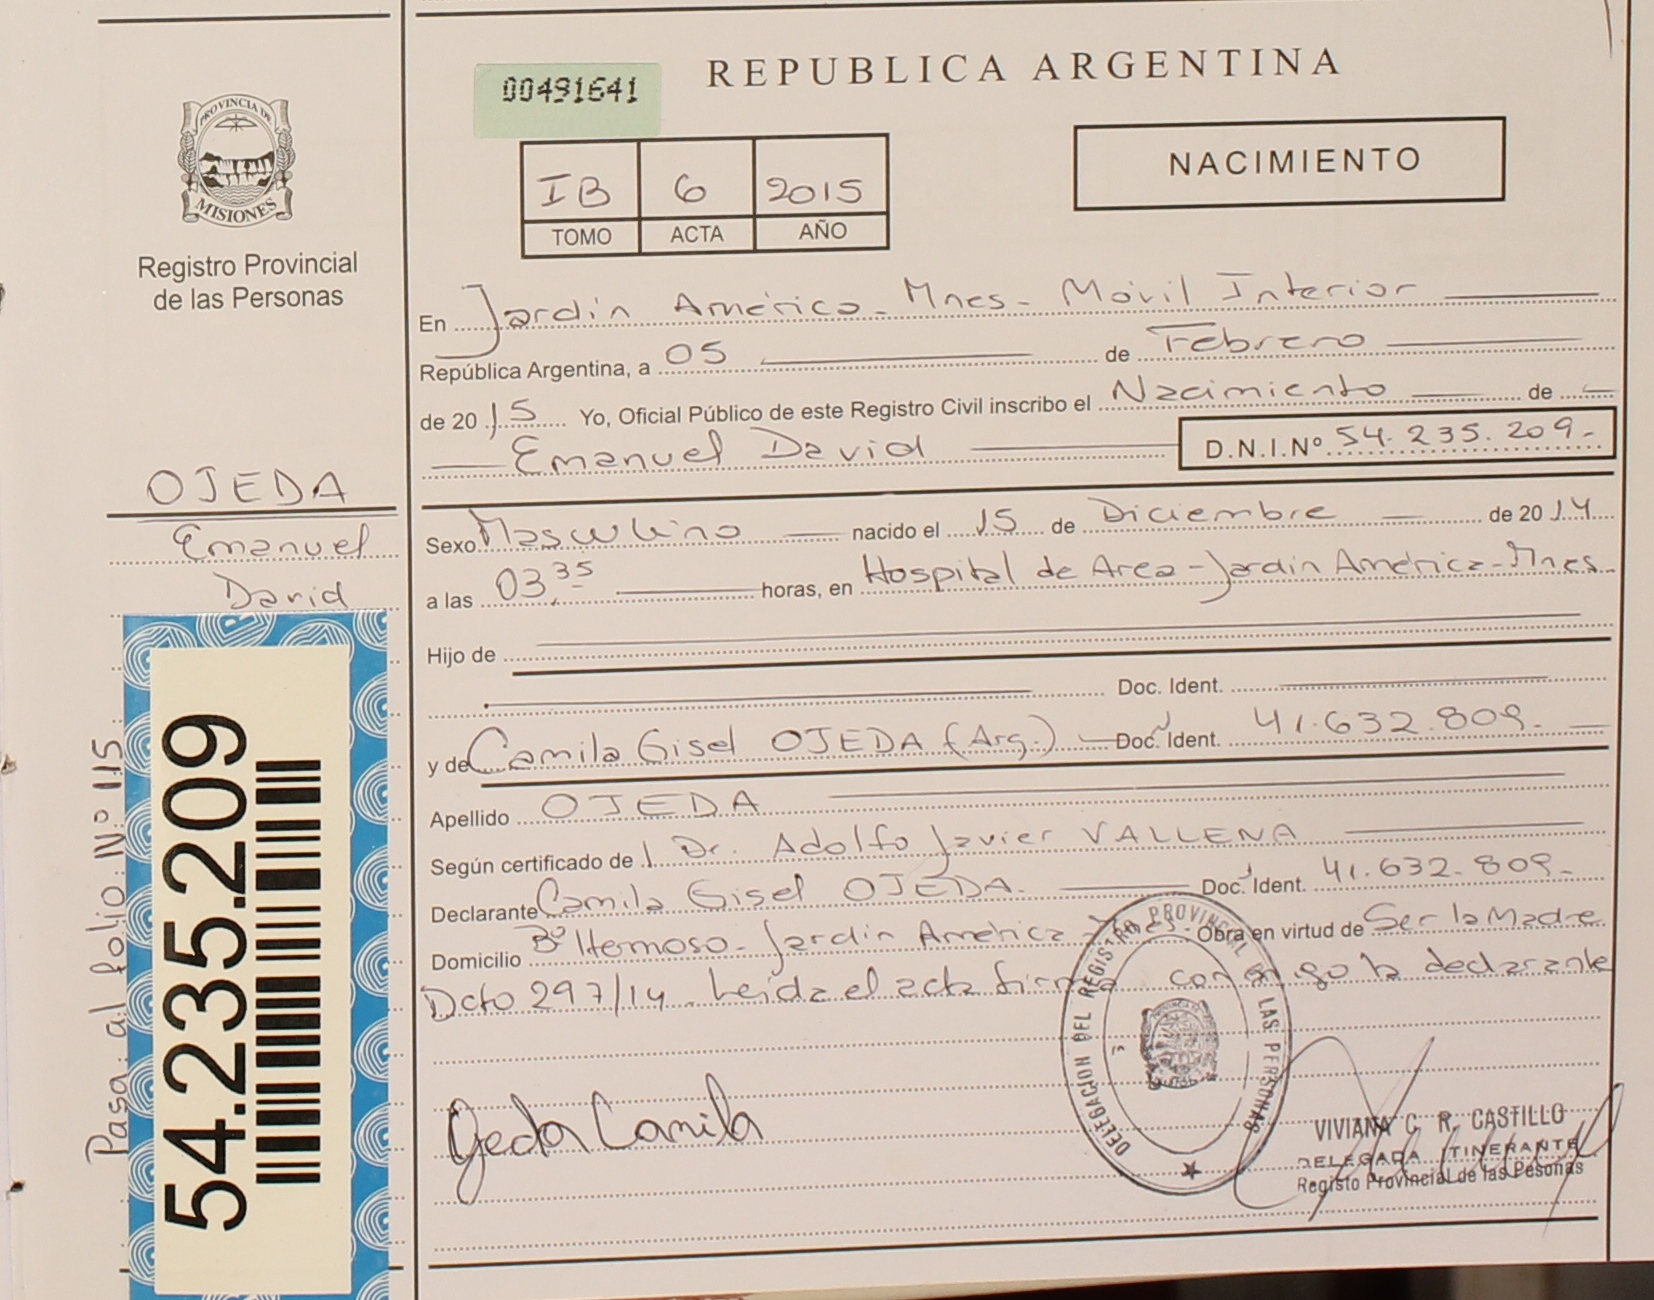 PROVINCIA DE
MISIONES
Registro Provincial
de las Personas
OJEDA
Emanuel
David
54.235.209
Pasa al folio Nº 115
00491641
REPUBLICA ARGENTINA
IB 6 2015
TOMO ACTA AÑO
NACIMIENTO
En Jardín América - Mnes - Móvil Interior
República Argentina, a 05 de Febrero
de 2015 Yo, Oficial Público de este Registro Civil inscribo el Nacimiento de
Emanuel David D.N.I.Nº 54.235.209-
Sexo Masculino nacido el 15 de Diciembre de 2014
a las 03,35 horas, en Hospital de Area - Jardín América - Mnes.
Hijo de
Doc. Ident.
y de Camila Gisel OJEDA (Arg.) Doc. Ident. 41.632.809.
Apellido OJEDA
Según certificado de Dr. Adolfo Javier VALLENA
Declarante Camila Gisel OJEDA. Doc. Ident. 41.632.809-
Domicilio Bº Hermoso - Jardín América - Mnes - Obra en virtud de Ser la Madre
Dcto 297/14. Leída el acta firma conmigo la declarante
Ojeda Camila
DELEGACION DEL REGISTRO PROVINCIAL DE LAS PERSONAS
VIVIANA C. R. CASTILLO
DELEGADA ITINERANTE
Registo Provincial de las Pesonas